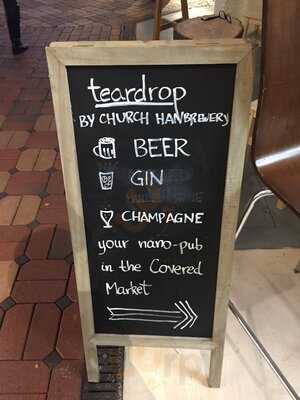 teardrop
BY CHURCH HANBREWERY
BEER
GIN
CHAMPAGNE
your nano-pub
in the Covered
Market